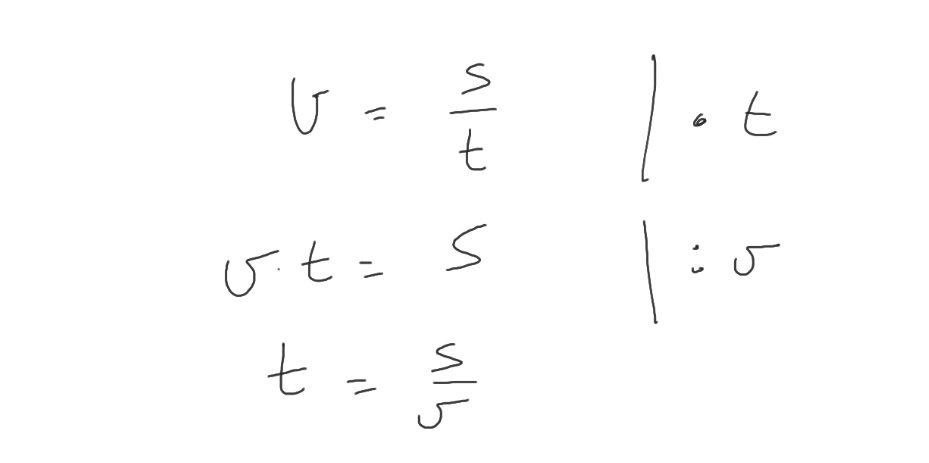 v = s/t | · t
v · t = s | : v
t = s/v